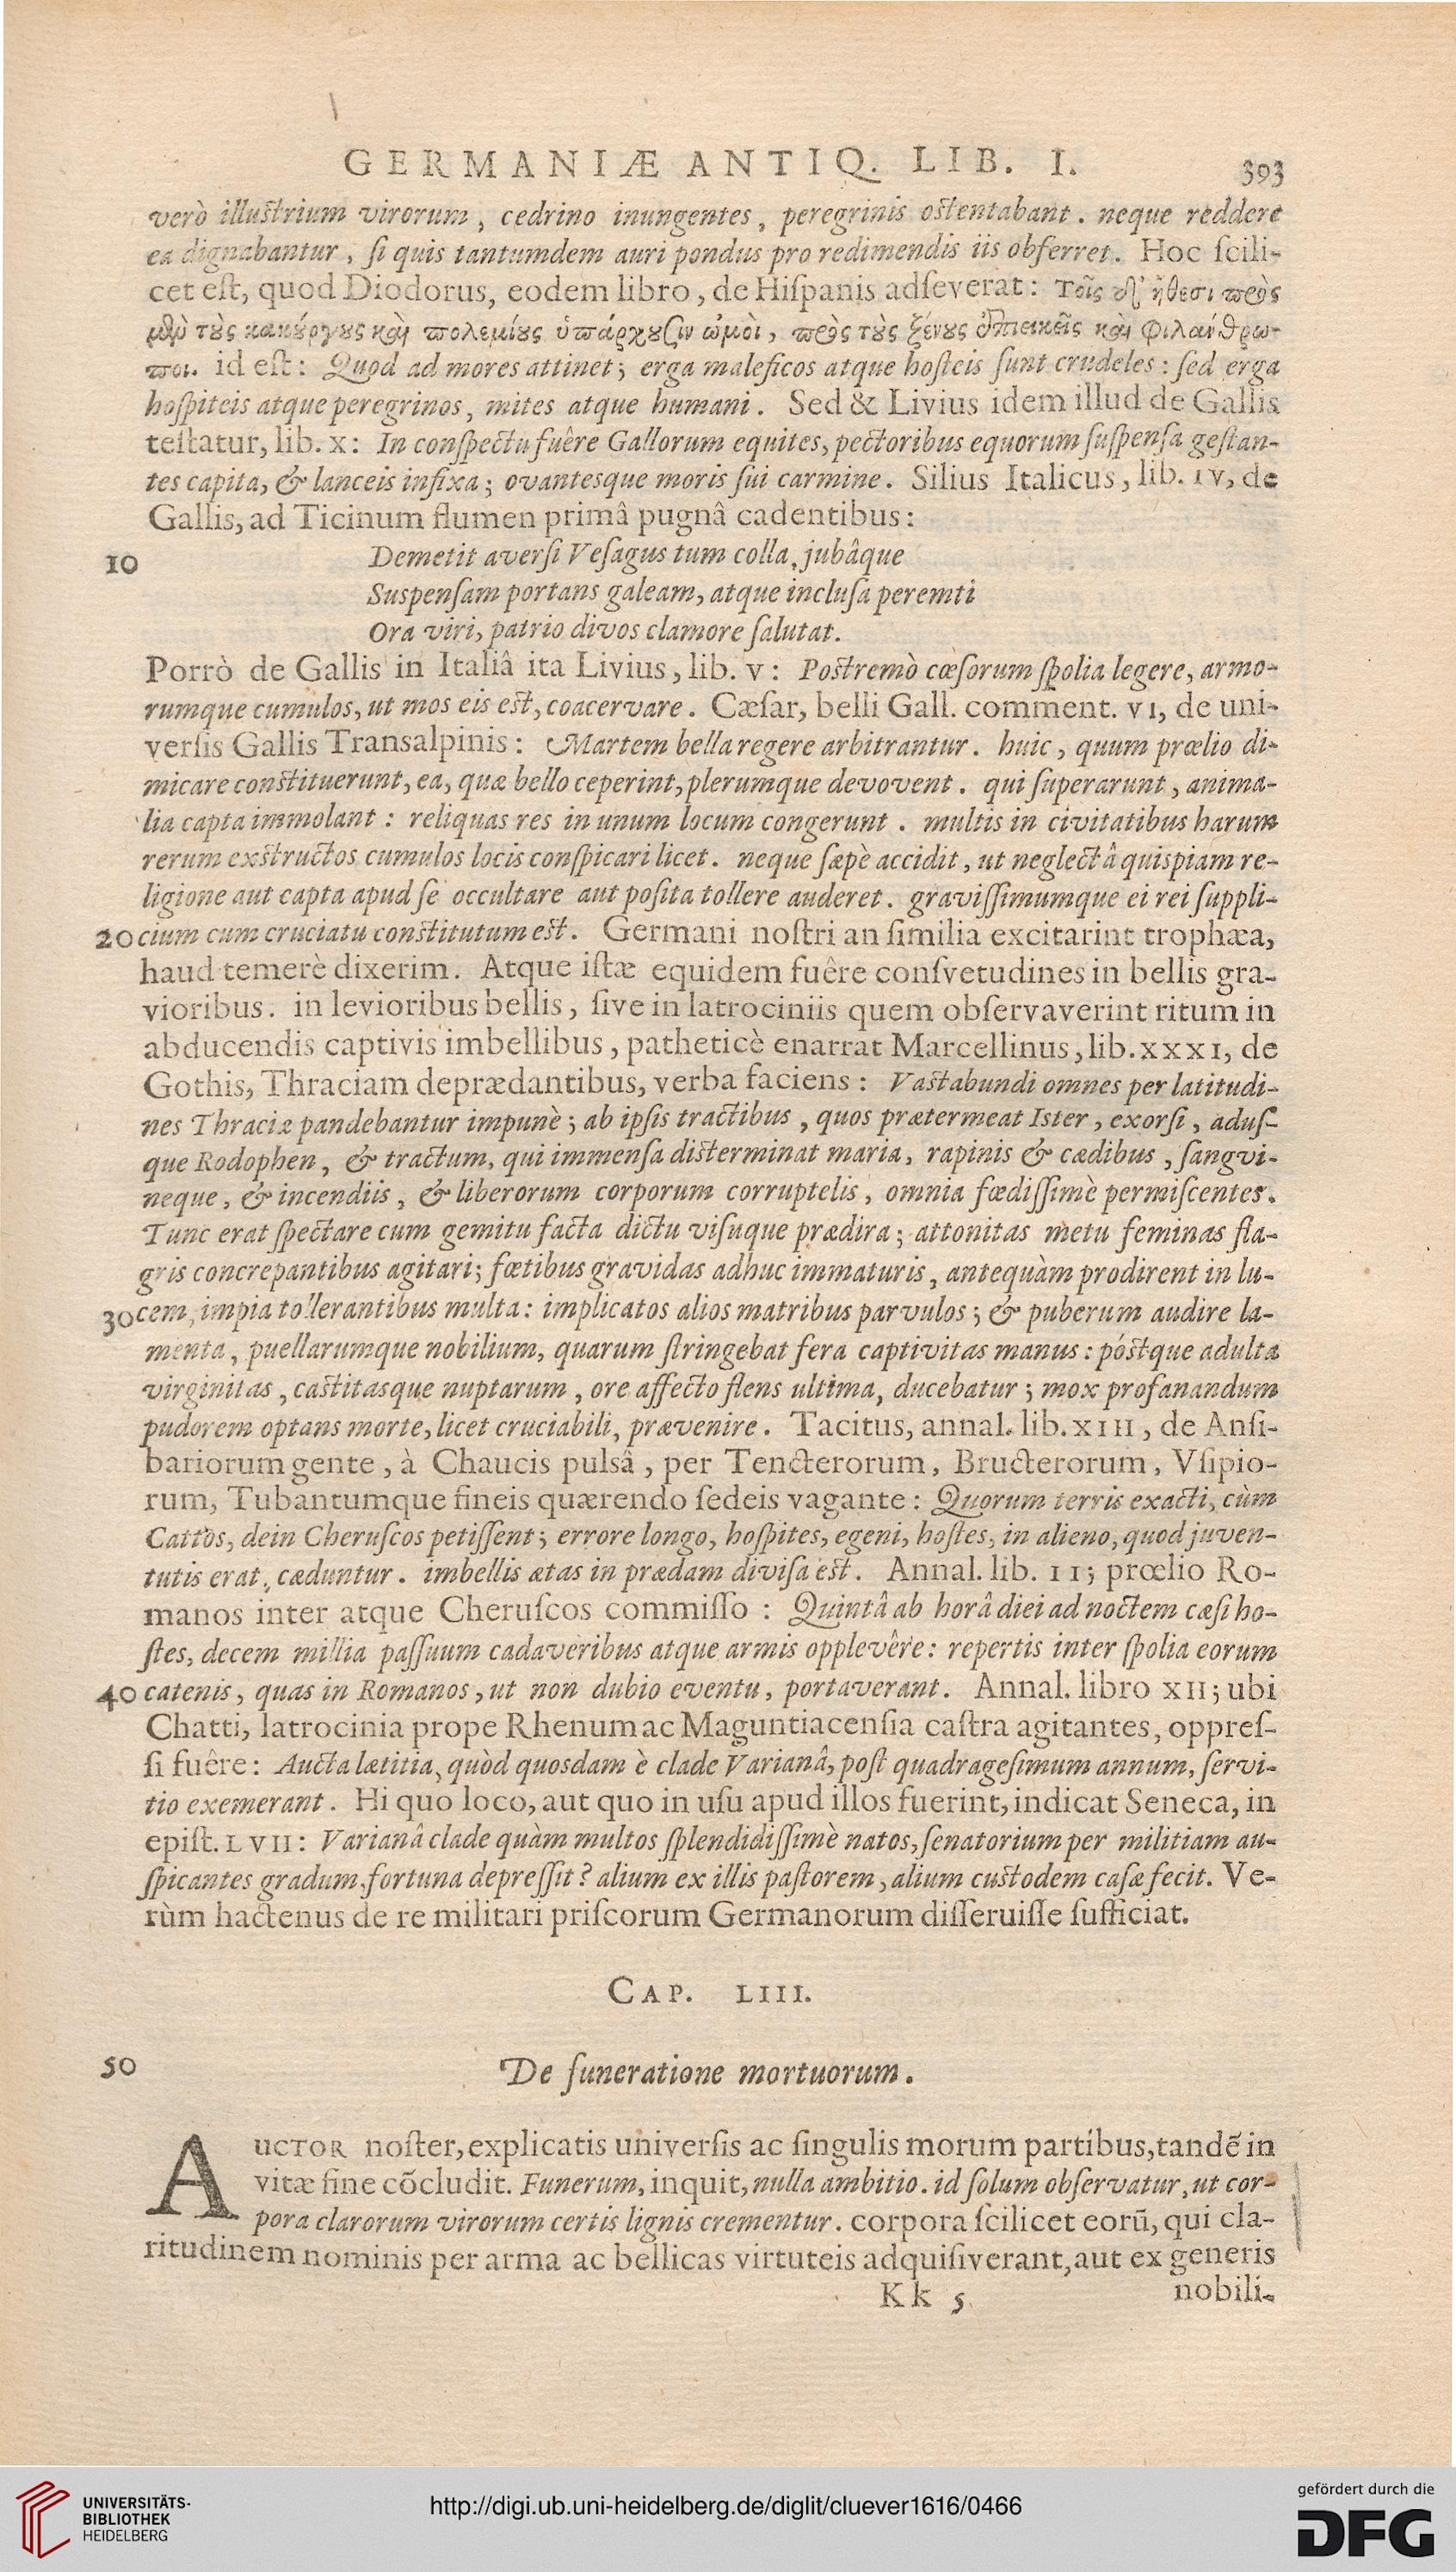 GERMANIÆ ANTIQ. LIB. I. 393
verò illuſtrium virorum, cedrino inungentes, peregrinis oſtentabant. neque reddere
ea dignabantur, ſi quis tantumdem auri pondus pro redimendis iis obferret. Hoc ſcili-
cet eſt, quod Diodorus, eodem libro, de Hiſpanis adſeverat: Τοῖς δ' ἤθεσι πρὸς
μὲν τοὺς κακούργους καὶ πολεμίους ὑπάρχουσιν ὠμοὶ, πρὸς τοὺς ξένους ἐπιεικεῖς καὶ φιλάνθρω-
ποι. id eſt: Quod ad mores attinet; erga maleficos atque hoſteis ſunt crudeles: ſed erga
hoſpiteis atque peregrinos, mites atque humani. Sed & Livius idem illud de Gallis
teſtatur, lib. x: In conſpectu fuêre Gallorum equites, pectoribus equorum ſuſpenſa geſtan-
tes capita, & lanceis infixa; ovantesque moris ſui carmine. Silius Italicus, lib. IV, de
Gallis, ad Ticinum flumen primâ pugnâ cadentibus:
10 Demetit averſi Veſagus tum colla, jubâque
Suspenſam portans galeam, atque incluſa peremti
Ora viri, patrio divos clamore ſalutat.
Porrò de Gallis in Italiâ ita Livius, lib. v: Poſtremò cæſorum ſpolia legere, armo-
rumque cumulos, ut mos eis eſt, coacervare. Cæſar, belli Gall. comment. VI, de uni-
verſis Gallis Transalpinis: Martem bella regere arbitrantur. huic, quum prœlio di-
micare conſtituerunt, ea, quæ bello ceperint, plerumque devovent. qui ſuperarunt, anima-
lia capta immolant: reliquas res in unum locum congerunt. multis in civitatibus harum
rerum exſtructos cumulos locis conſpicari licet. neque ſæpè accidit, ut neglectâ quispiam re-
ligione aut capta apud ſe occultare aut poſita tollere auderet. graviſſimumque ei rei ſuppli-
20 cium cum cruciatu conſtitutum eſt. Germani noſtri an ſimilia excitarint trophæa,
haud temerè dixerim. Atque iſtæ equidem fuêre conſvetudines in bellis gra-
vioribus. in levioribus bellis, ſive in latrociniis quem obſervaverint ritum in
abducendis captivis imbellibus, patheticè enarrat Marcellinus, lib. XXXI, de
Gothis, Thraciam deprædantibus, verba faciens: Vaſtabundi omnes per latitudi-
nes Thraciæ pandebantur impunè; ab ipſis tractibus, quos prætermeat Iſter, exorſi, aduſ-
que Rodophen, & tractum, qui immenſa diſterminat maria, rapinis & cædibus, ſangvi-
neque, & incendiis, & liberorum corporum corruptelis, omnia fœdiſſimè permiſcentes.
Tunc erat ſpectare cum gemitu facta dictu viſuque prædira; attonitas metu feminas fla-
gris concrepantibus agitari; fœtibus gravidas adhuc immaturis, antequàm prodirent in lu-
30 cem, impia tollerantibus multa: implicatos alios matribus parvulos; & puberum audire la-
menta, puellarumque nobilium, quarum ſtringebat fera captivitas manus: póſtque adulta
virginitas, caſtitasque nuptarum, ore affecto flens ultima, ducebatur; mox profanandum
pudorem optans morte, licet cruciabili, prævenire. Tacitus, annal. lib. XIII, de Anſi-
bariorum gente, à Chaucis pulsâ, per Tencterorum, Bructerorum, Vſipio-
rum, Tubantumque fineis quærendo ſedeis vagante: Quorum terris exacti, cùm
Cattos, dein Cheruſcos petiſſent; errore longo, hoſpites, egeni, hoſtes, in alieno, quod juven-
tutis erat, cæduntur. imbellis ætas in prædam diviſa eſt. Annal. lib. II; prœlio Ro-
manos inter atque Cheruſcos commiſſo: Quintâ ab horâ diei ad noctem cæſi ho-
ſtes, decem millia paſſuum cadaveribus atque armis opplevêre: repertis inter ſpolia eorum
40 catenis, quas in Romanos, ut non dubio eventu, portaverant. Annal. libro XII; ubi
Chatti, latrocinia prope Rhenum ac Maguntiacenſia caſtra agitantes, oppreſ-
ſi fuêre: Aucta lætitia, quòd quosdam è clade Varianâ, poſt quadrageſimum annum, ſervi-
tio exemerant. Hi quo loco, aut quo in uſu apud illos fuerint, indicat Seneca, in
epiſt. LVII: Varianâ clade quàm multos ſplendidiſſimè natos, ſenatorium per militiam au-
ſpicantes gradum, fortuna depreſſit? alium ex illis paſtorem, alium cuſtodem caſæ fecit. Ve-
rùm hactenus de re militari priſcorum Germanorum diſſeruiſſe ſufficiat.
CAP. LIII.
50 De funeratione mortuorum.
AUCTOR noſter, explicatis univerſis ac ſingulis morum partibus, tandē in
vitæ fine cōcludit. Funerum, inquit, nulla ambitio. id ſolum obſervatur, ut cor-
pora clarorum virorum certis lignis crementur. corpora ſcilicet eorū, qui cla-
ritudinem nominis per arma ac bellicas virtuteis adquiſiverant, aut ex generis
Kk 5 nobili-
UNIVERSITÄTS-
BIBLIOTHEK
HEIDELBERG
http://digi.ub.uni-heidelberg.de/diglit/cluever1616/0466
gefördert durch die
DFG